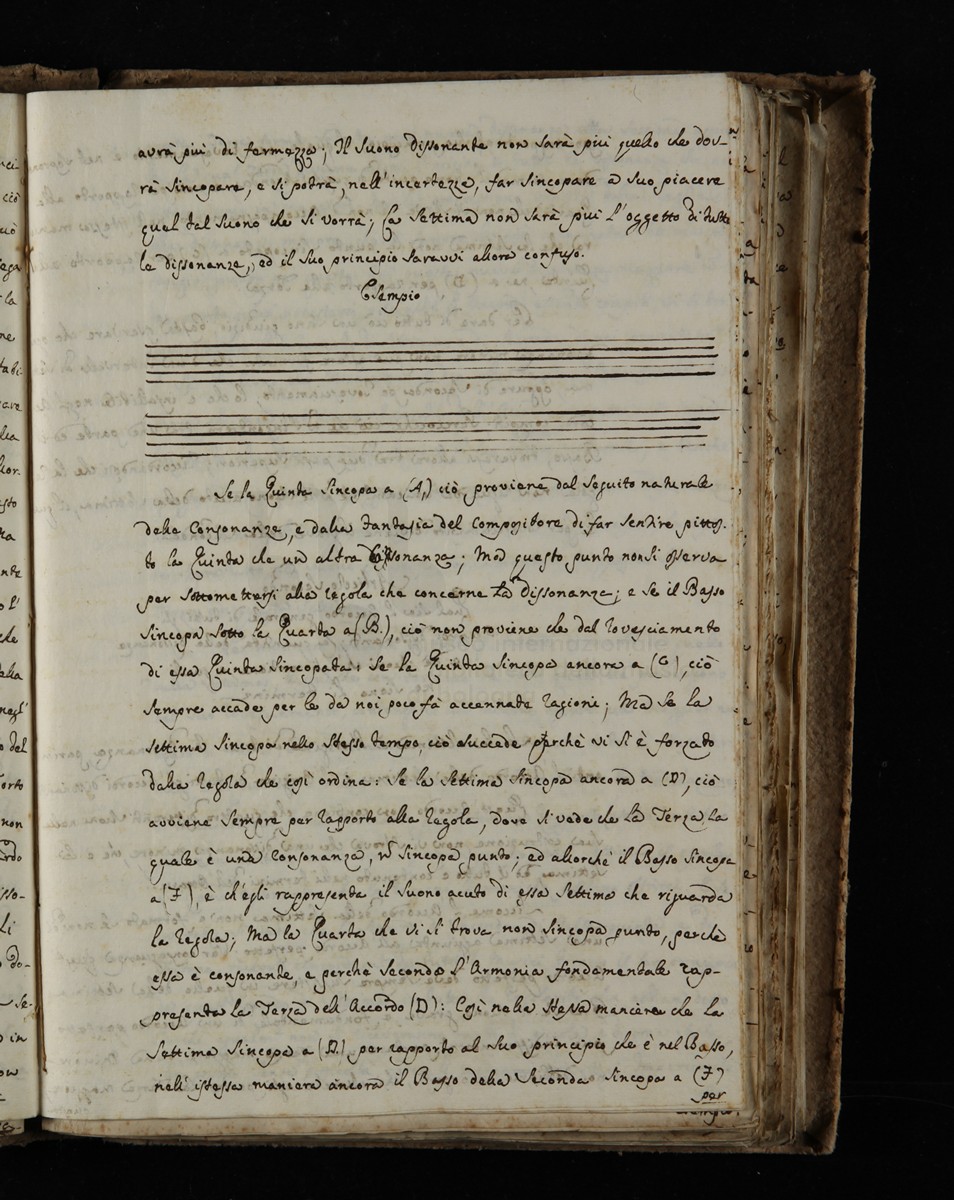 avrà più di fermezza; Il Suono dissonante non sarà più quello che dov-
rà sincopare, e si potrà, nell'incertezza, far sincopare a suo piacere
qual tal suono che si vorrà; La Settima non sarà più l'oggetto di tutte
le dissonanze, ed il suo principio saravvi allora confuso.
Esempio
Se la Quinta sincopa a (A,) ciò proviene dal seguito naturale
delle Consonanze, e dalla fantasia del Compositore di far sentire pittos-
to la Quinta che un altra Consonanza; Ma questo punto non si osserva
per sottomettersi alla regola che concerne La Dissonanza; e se il Basso
sincopa sotto la Quarta a (B.), ciò non proviene che dal rovesciamento
di essa Quinta sincopata: Se la Quinta sincopa ancora a (C), ciò
sempre accade per le da noi poco fà accennate ragioni; Ma se la
settima sincopa nello stesso tempo, ciò succede perchè vi si è forzato
dalla regola che così ordina: Se la settima sincopa ancora a (D), ciò
avviene sempre per rapporto alla regola, dove si vede che La Terza la
quale è una Consonanza, sincopa punto; ed allorchè il Basso sincopa
a (F), è ch'egli rappresenta il suono acuto di essa settima che riguarda
la regola; Ma la Quarta che vi si trova non sincopa punto, perchè
essa è consonante, e perchè secondo l'Armonia fondamentale rap-
presenta la Terza dell'Accordo (D): Così nella stessa maniera che la
settima sincopa a (D.) per rapporto al suo principio che è nel Basso,
nell'istessa maniera ancora il Basso della Seconda sincopa a (F)
per